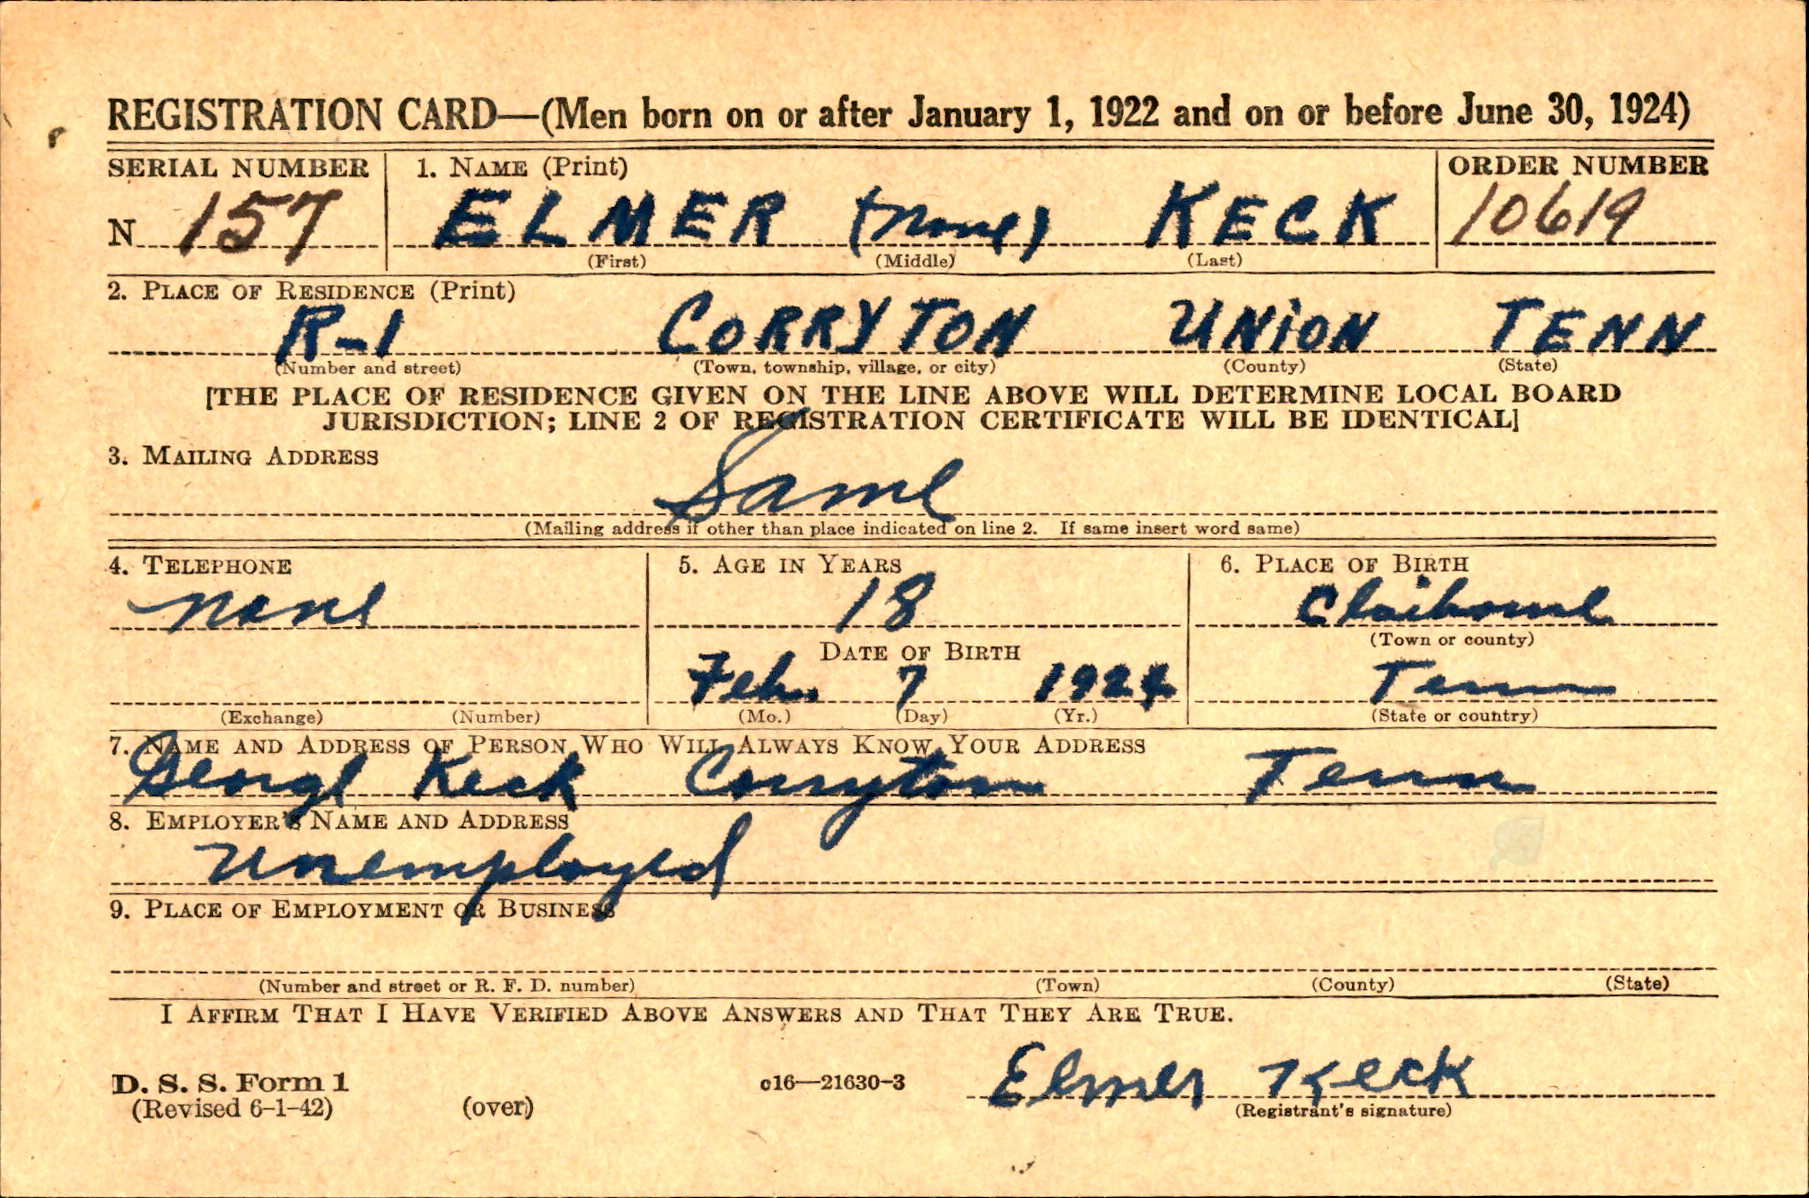 REGISTRATION CARD—(Men born on or after January 1, 1922 and on or before June 30, 1924)
SERIAL NUMBER 1. NAME (Print) ORDER NUMBER
N 157 ELMER (None) KECK 10619
(First) (Middle) (Last)
2. PLACE OF RESIDENCE (Print)
R-1 CORRYTON UNION TENN
(Number and street) (Town, township, village, or city) (County) (State)
[THE PLACE OF RESIDENCE GIVEN ON THE LINE ABOVE WILL DETERMINE LOCAL BOARD
JURISDICTION; LINE 2 OF REGISTRATION CERTIFICATE WILL BE IDENTICAL]
3. MAILING ADDRESS
Same
(Mailing address if other than place indicated on line 2. If same insert word same)
4. TELEPHONE 5. AGE IN YEARS 6. PLACE OF BIRTH
None 18 Claiborne
(Town or county)
DATE OF BIRTH
Feb. 7 1924 Tenn
(Exchange) (Number) (Mo.) (Day) (Yr.) (State or country)
7. NAME AND ADDRESS OF PERSON WHO WILL ALWAYS KNOW YOUR ADDRESS
George Keck Corryton Tenn
8. EMPLOYER'S NAME AND ADDRESS
Unemployed
9. PLACE OF EMPLOYMENT OR BUSINESS
(Number and street or R. F. D. number) (Town) (County) (State)
I AFFIRM THAT I HAVE VERIFIED ABOVE ANSWERS AND THAT THEY ARE TRUE.
D. S. S. Form 1 c16—21630-3 Elmer Keck
(Revised 6-1-42) (over) (Registrant's signature)